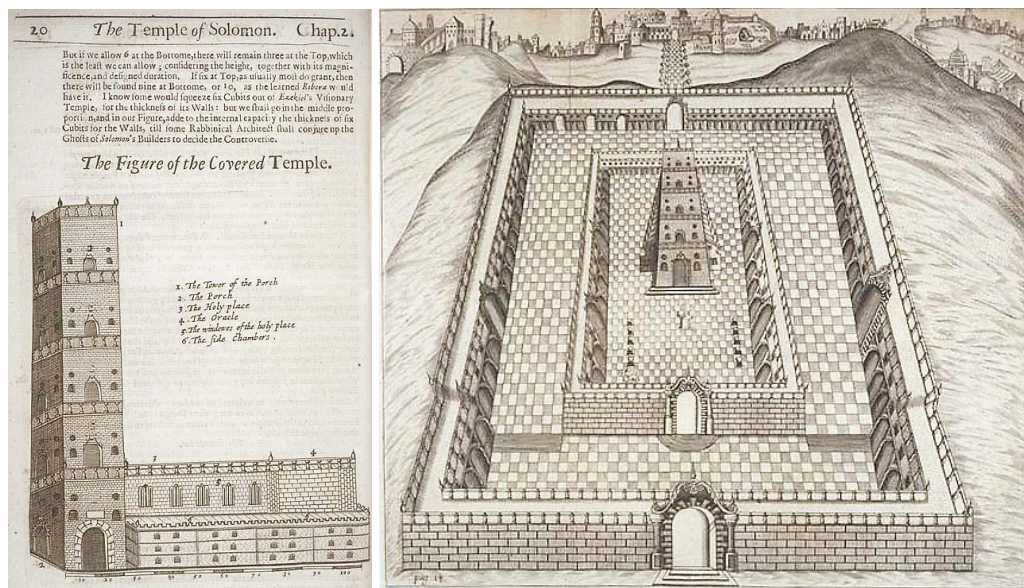 20 The Temple of Solomon. Chap.2.
But if we allow 6 at the Bottome,there will remain three at the Top,which
is the leaſt we can allow ; conſidering the height, together with its magni-
ficence,and deſigned duration. If ſix at Top,as uſually moſt do grant,then
there will be found nine at Bottome, or 10, as the learned Ribera would
have it. I know ſome would ſqueeze ſix Cubits out of Ezekiel's Viſionary
Temple, for the thickneſs of its Walls : but we ſhall go in the middle pro-
porti n,and in our Figure,adde to the internal capacity the thickneſs of ſix
Cubits for the Walls, till ſome Rabbinical Architect ſhall conjure up the
Ghoſts of Solomon's Builders to decide the Controverſie.
The Figure of the Covered Temple.
1
2
1. The Tower of the Porch
2. The Porch
3. The Holy place
4. The Oracle
5. The windowes of the holy place
6. The ſide Chambers.
3
4
5
2
10 20 30 40 50 60 70 80 90 100
pag 19